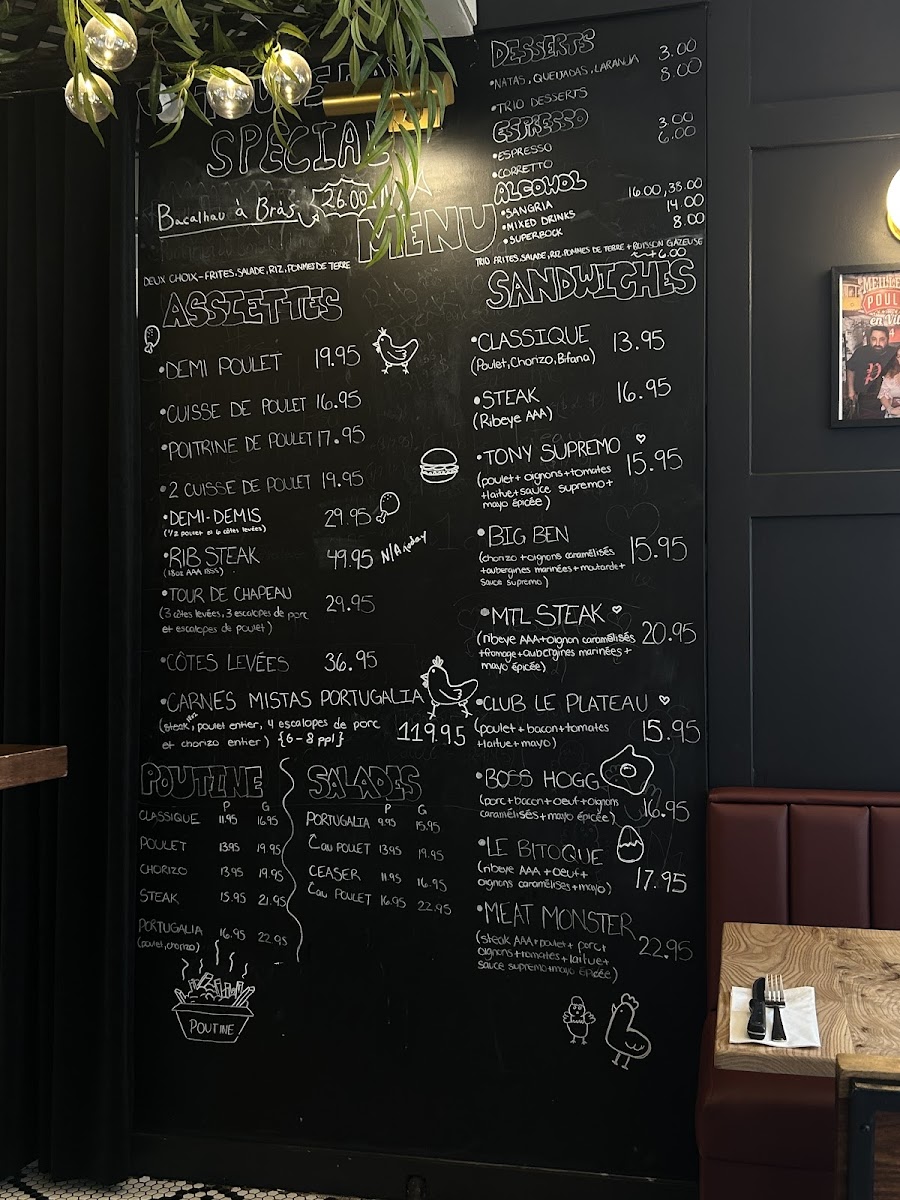 SPECIAL
Bacalhau à Bràs 26.00
MENU
DEUX CHOIX - FRITES, SALADE, RIZ, POMMES DE TERRE
ASSIETTES
•DEMI POULET 19.95
•CUISSE DE POULET 16.95
•POITRINE DE POULET 17.95
•2 CUISSE DE POULET 19.95
•DEMI-DEMIS 29.95
(1/2 poulet et 6 côtes levées)
•RIB STEAK 49.95 N/A today
•TOUR DE CHAPEAU 29.95
(3 côtes levées, 3 escalopes de porc
et escalopes de poulet)
•CÔTES LEVÉES 36.95
•CARNES MISTAS PORTUGALIA
(steak, poulet entier, 4 escalopes de porc 119.95
et chorizo entier) {6-8 ppl}
POUTINE
P G
CLASSIQUE 11.95 16.95
POULET 13.95 19.95
CHORIZO 13.95 19.95
STEAK 15.95 21.95
PORTUGALIA 16.95 22.95
(poulet, chorizo)
POUTINE
SALADES
P G
PORTUGALIA 9.95 15.95
au POULET 13.95 19.95
CEASER 11.95 16.95
au POULET 16.95 22.95
DESSERTS
•NATAS, QUEIJADAS, LARANJA 3.00
•TRIO DESSERTS 8.00
ESPRESSO
•ESPRESSO 3.00
•CORRETTO 6.00
ALCOHOL
•SANGRIA 16.00, 35.00
•MIXED DRINKS 14.00
•SUPERBOCK 8.00
TRIO FRITES, SALADE, RIZ, POMMES DE TERRE + BOISSON GAZEUSE
+6.00
SANDWICHES
•CLASSIQUE 13.95
(Poulet, Chorizo, Bifana)
•STEAK 16.95
(Ribeye AAA)
•TONY SUPREMO 15.95
(poulet + oignons + tomates
+ laitue + sauce supremo +
mayo épicée)
•BIG BEN 15.95
(chorizo + oignons caramélisés
+ aubergines marinées + moutarde +
sauce supremo)
•MTL STEAK 20.95
(ribeye AAA + oignon caramélisés
+ fromage + aubergines marinées +
mayo épicée)
•CLUB LE PLATEAU 15.95
(poulet + bacon + tomates
+ laitue + mayo)
•BOSS HOGG 16.95
(porc + bacon + oeuf + oignons
caramélisés + mayo épicée)
•LE BITOQUE 17.95
(ribeye AAA + oeuf +
oignons caramélises + mayo)
•MEAT MONSTER 22.95
(steak AAA + poulet + porc +
oignons + tomates + laitue +
sauce supremo + mayo épicée)